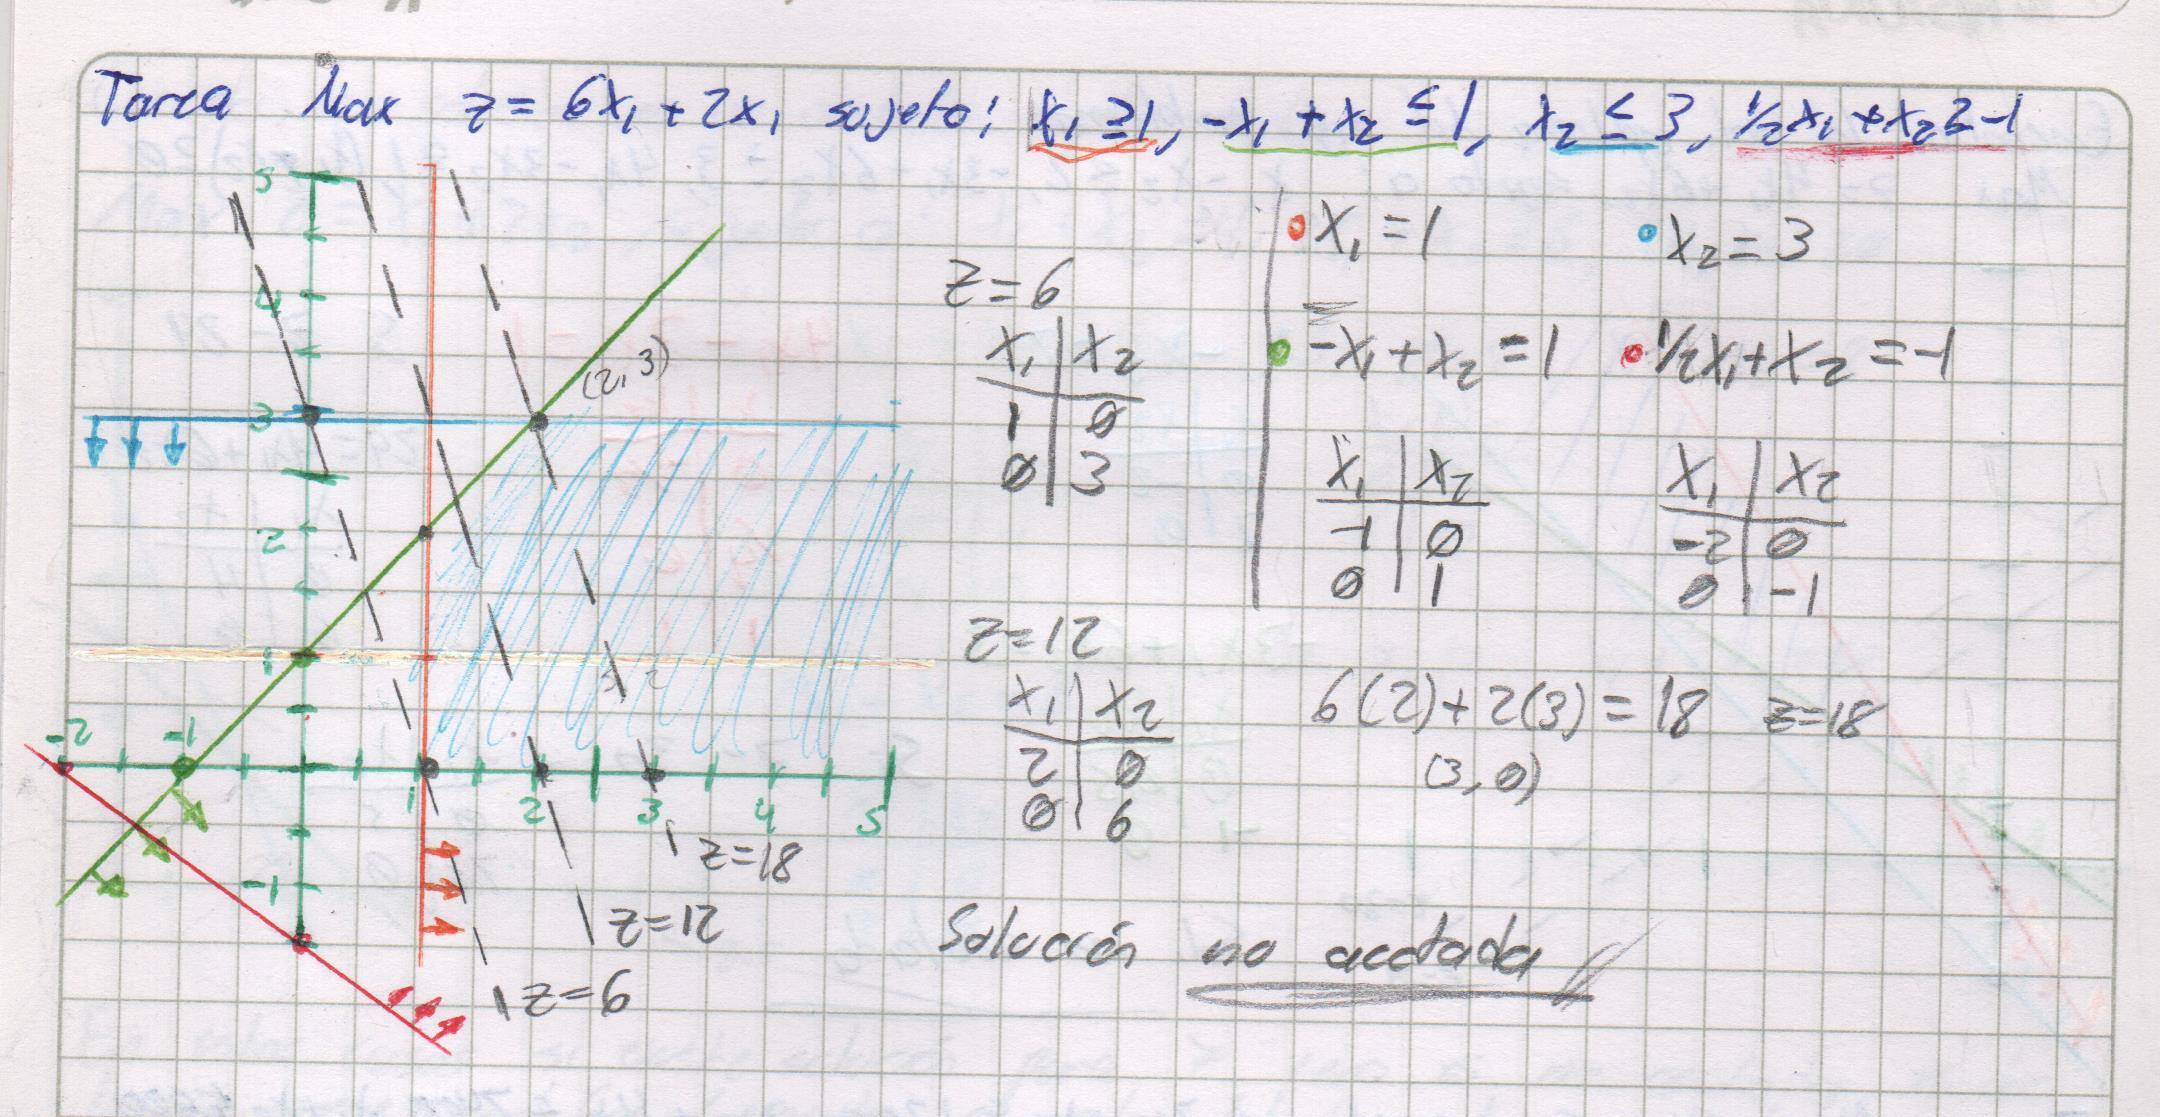 Tarea Max z = 6x₁ + 2x₁ sujeto: x₁ ≥ 1, -x₁ + x₂ ≤ 1, x₂ ≤ 3, 1/2x₁ + x₂ ≥ -1
5
4
3
2
1
-1
-2 -1 1 2 3 4 5
(2, 3)
z=18
z=12
z=6
z=6
x₁ | x₂
1 | 0
0 | 3
z=12
x₁ | x₂
2 | 0
0 | 6
x₁ = 1
x₂ = 3
-x₁ + x₂ = 1
x₁ | x₂
-1 | 0
0 | 1
1/2x₁ + x₂ = -1
x₁ | x₂
-2 | 0
0 | -1
6(2) + 2(3) = 18 z=18
(3, 0)
Solución no acotada